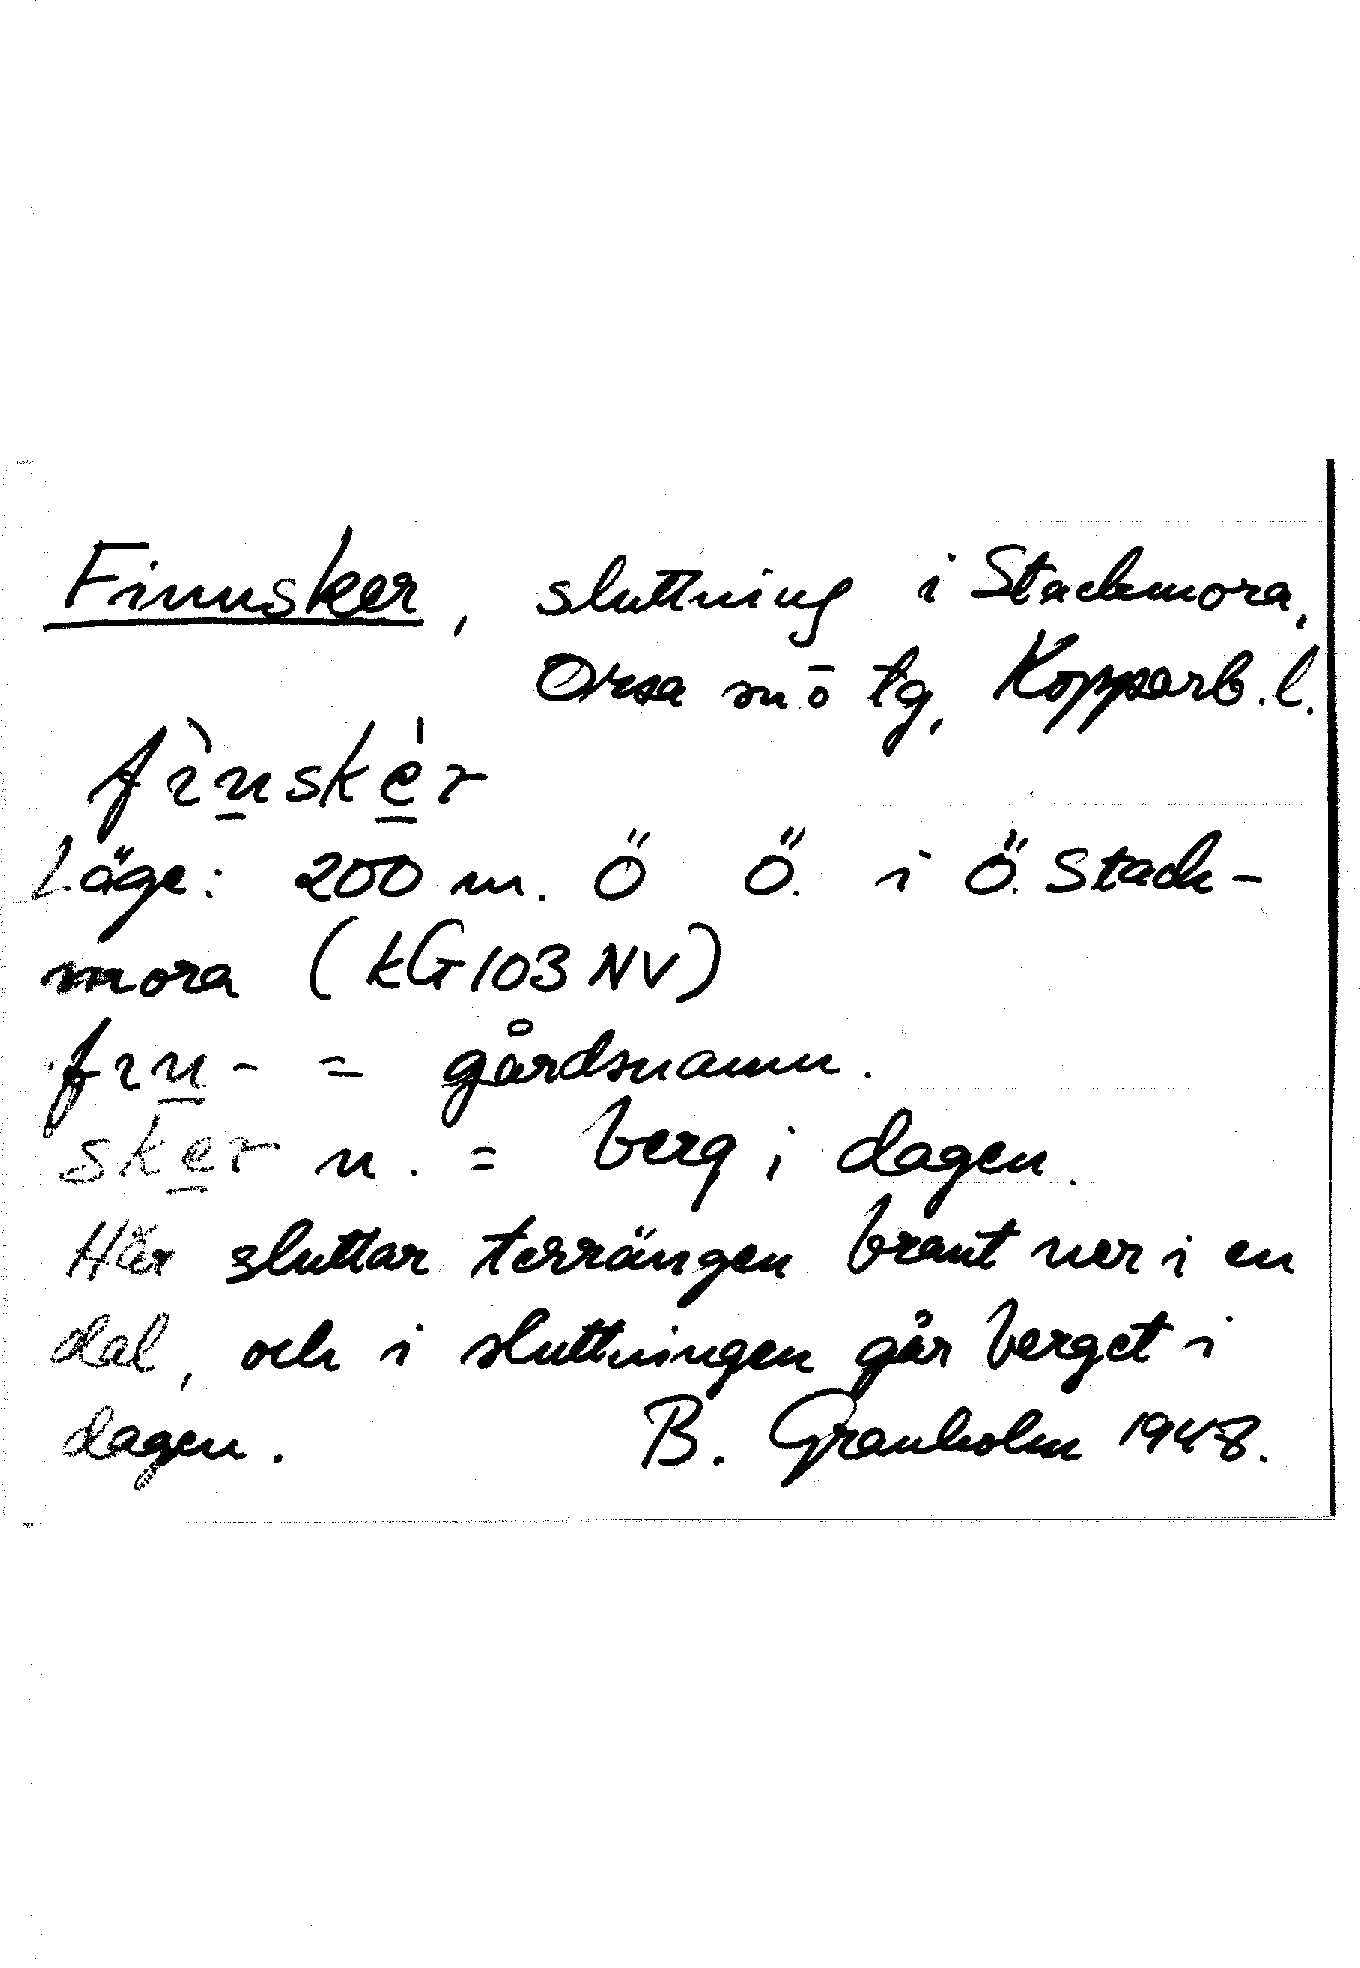 Finnsker, sluttning i Stackmora,
Orsa sn ō tg, Kopparb. l.
fìnskér
Läge: 200 m. Ö Ö. i Ö. Stack-
mora (kG 103 NV)
fin- = gårdsnamn.
sker n. = berg i dagen.
Här sluttar terrängen brant ner i en
dal, och i sluttningen går berget i
dagen. B. Granholm 1948.